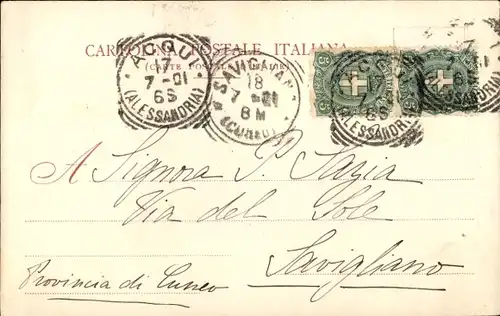 CARTOLINA POSTALE ITALIANA
(CARTE POSTALE D'ITALIE)
ACQUI
17
7-01
6S
(ALESSANDRIA)
SAVIGLIANO
18
7-01
8M
(CUNEO)
ACQUI
7-01
6S
(ALESSANDRIA)
A Signora P.
Via del Sole
Savigliano
Provincia di Cuneo